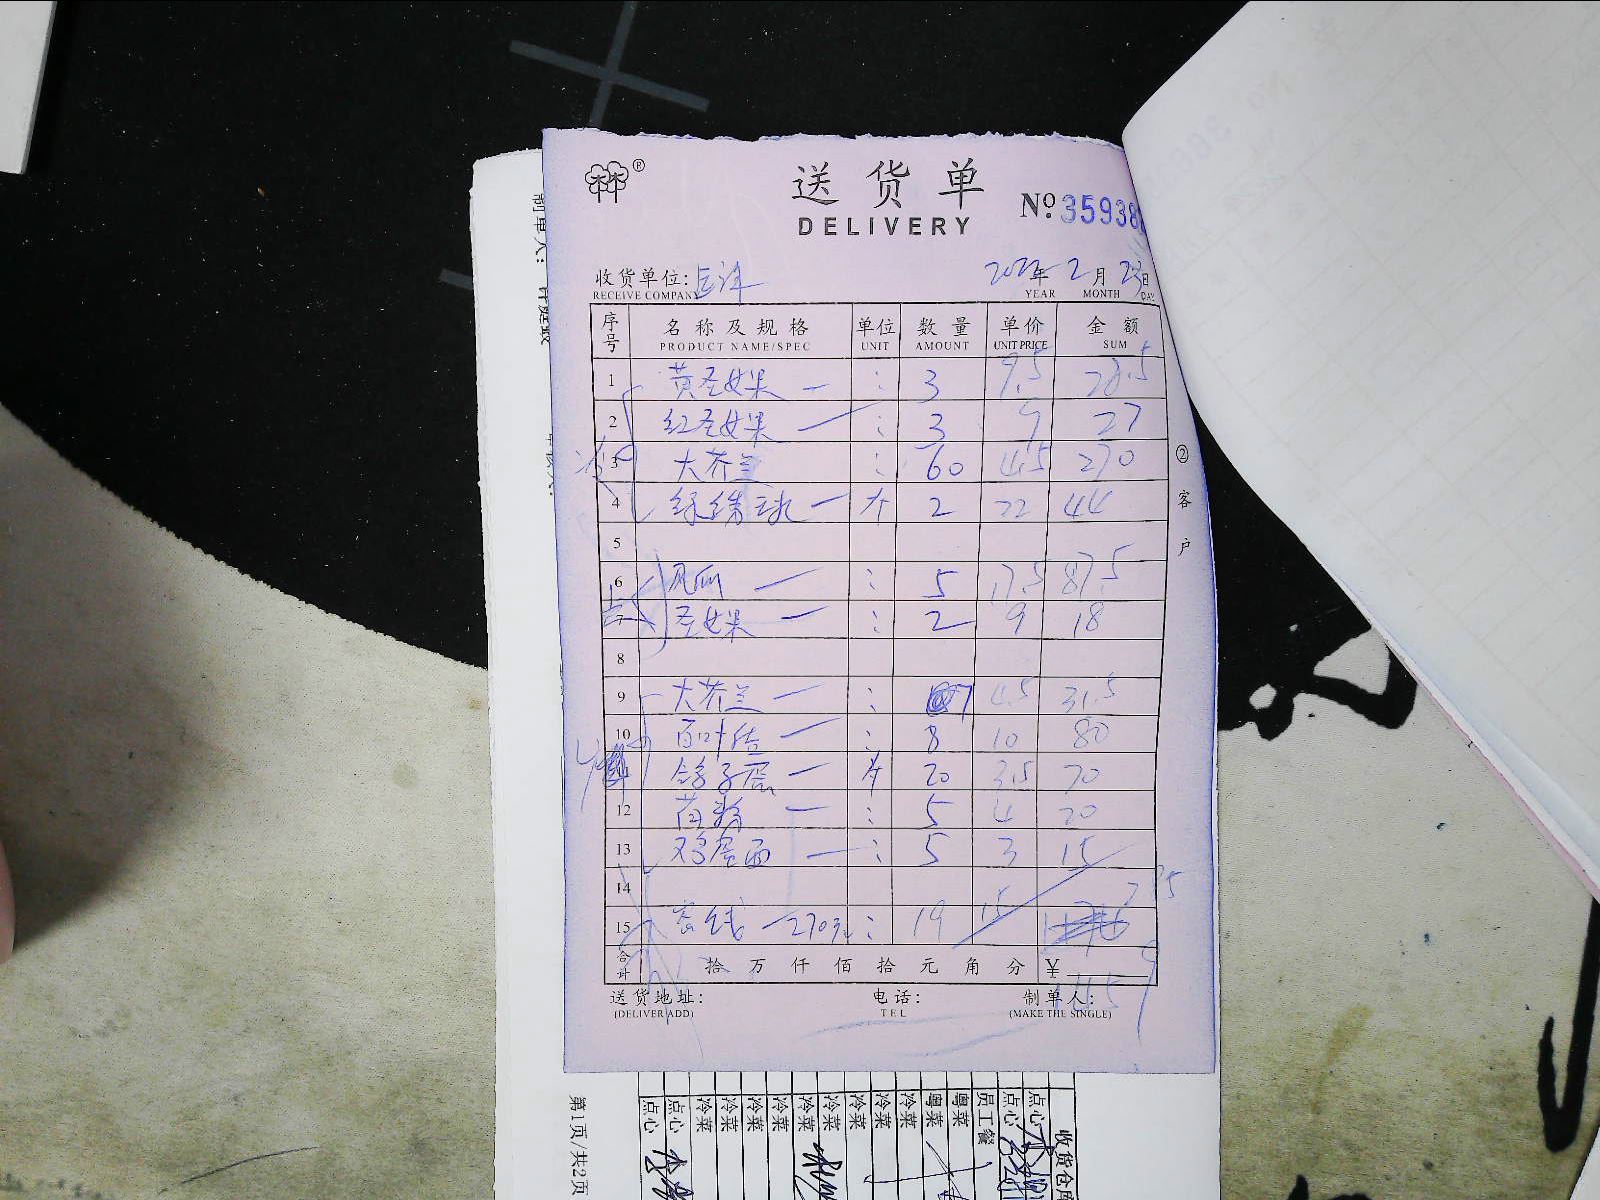 送货单
DELIVERY
No. 35938
收货单位:
RECEIVE COMPANY
2022年 2月 23日
YEAR MONTH DAY
序号 名称及规格 单位 数量 单价 金额
PRODUCT NAME/SPEC UNIT AMOUNT UNIT PRICE SUM
1 黄圣女果 — : 3 9.5 28.5
2 红圣女果 — : 3 9 27
3 大芥兰 : 60 4.5 270
4 绿绣球 — 个 2 22 44
5
6 — : 5 17.5 87.5
7 圣女果 — : 2 9 18
8
9 大芥兰 — : 7 4.5 31.5
10 百叶结 — : 8 10 80
11 鸽子蛋 — 个 20 3.5 70
12 — : 5 4 20
13 鸡蛋面 — : 5 3 15
14
15 : 19 15
合计 拾 万 仟 佰 拾 元 角 分 ¥
送货地址: 电话: 制单人:
(DELIVER ADD) TEL (MAKE THE SINGLE)
②客户
制单人:
点心 点心 冷菜 冷菜 冷菜 冷菜 冷菜 冷菜 冷菜 冷菜 冷菜 粤菜 粤菜 员工餐 点心 点心 收货仓库
第1页/共2页